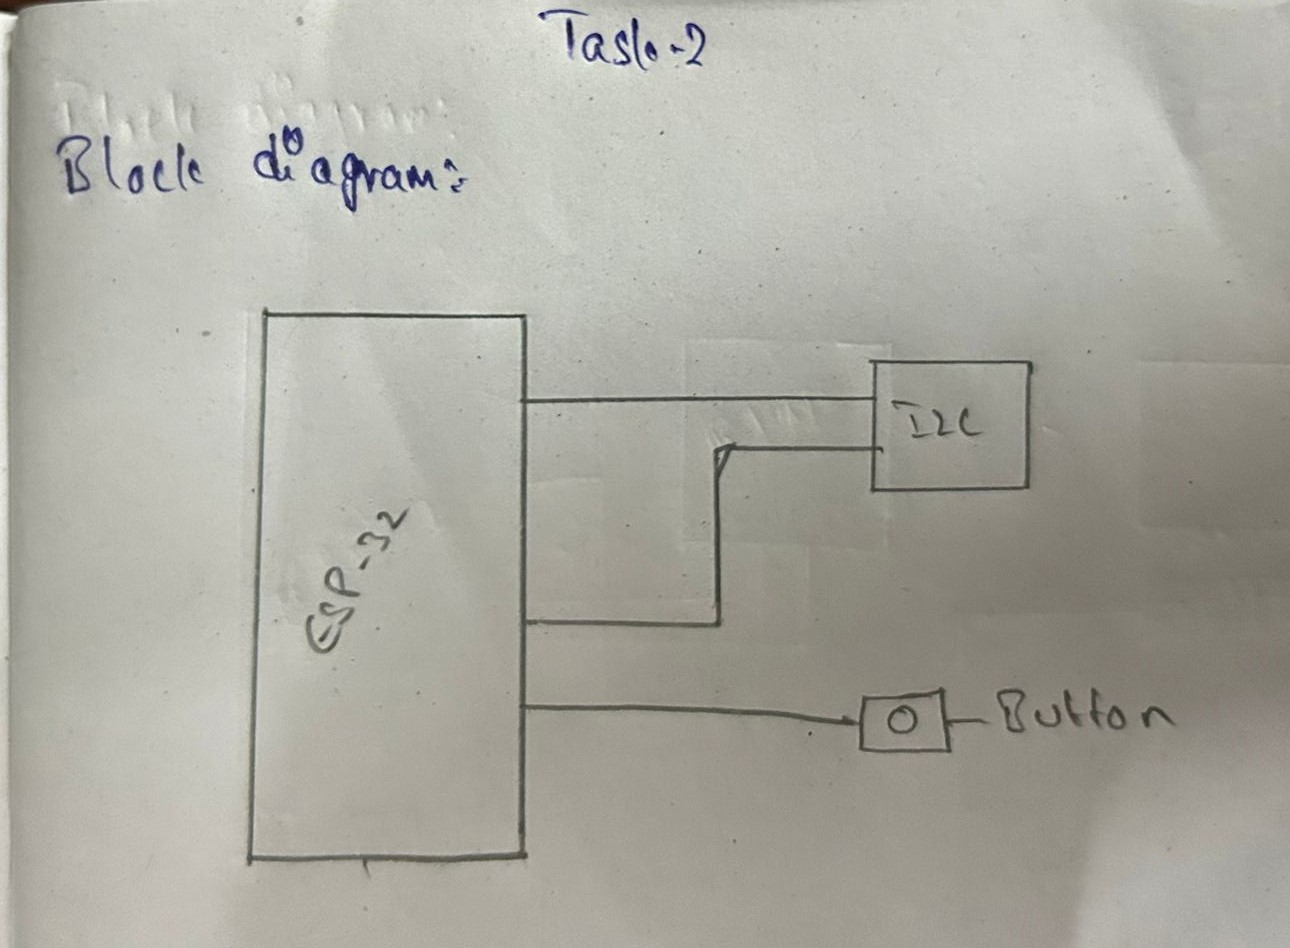 Task-2
Block diagram:
I2C
ESP-32
Button